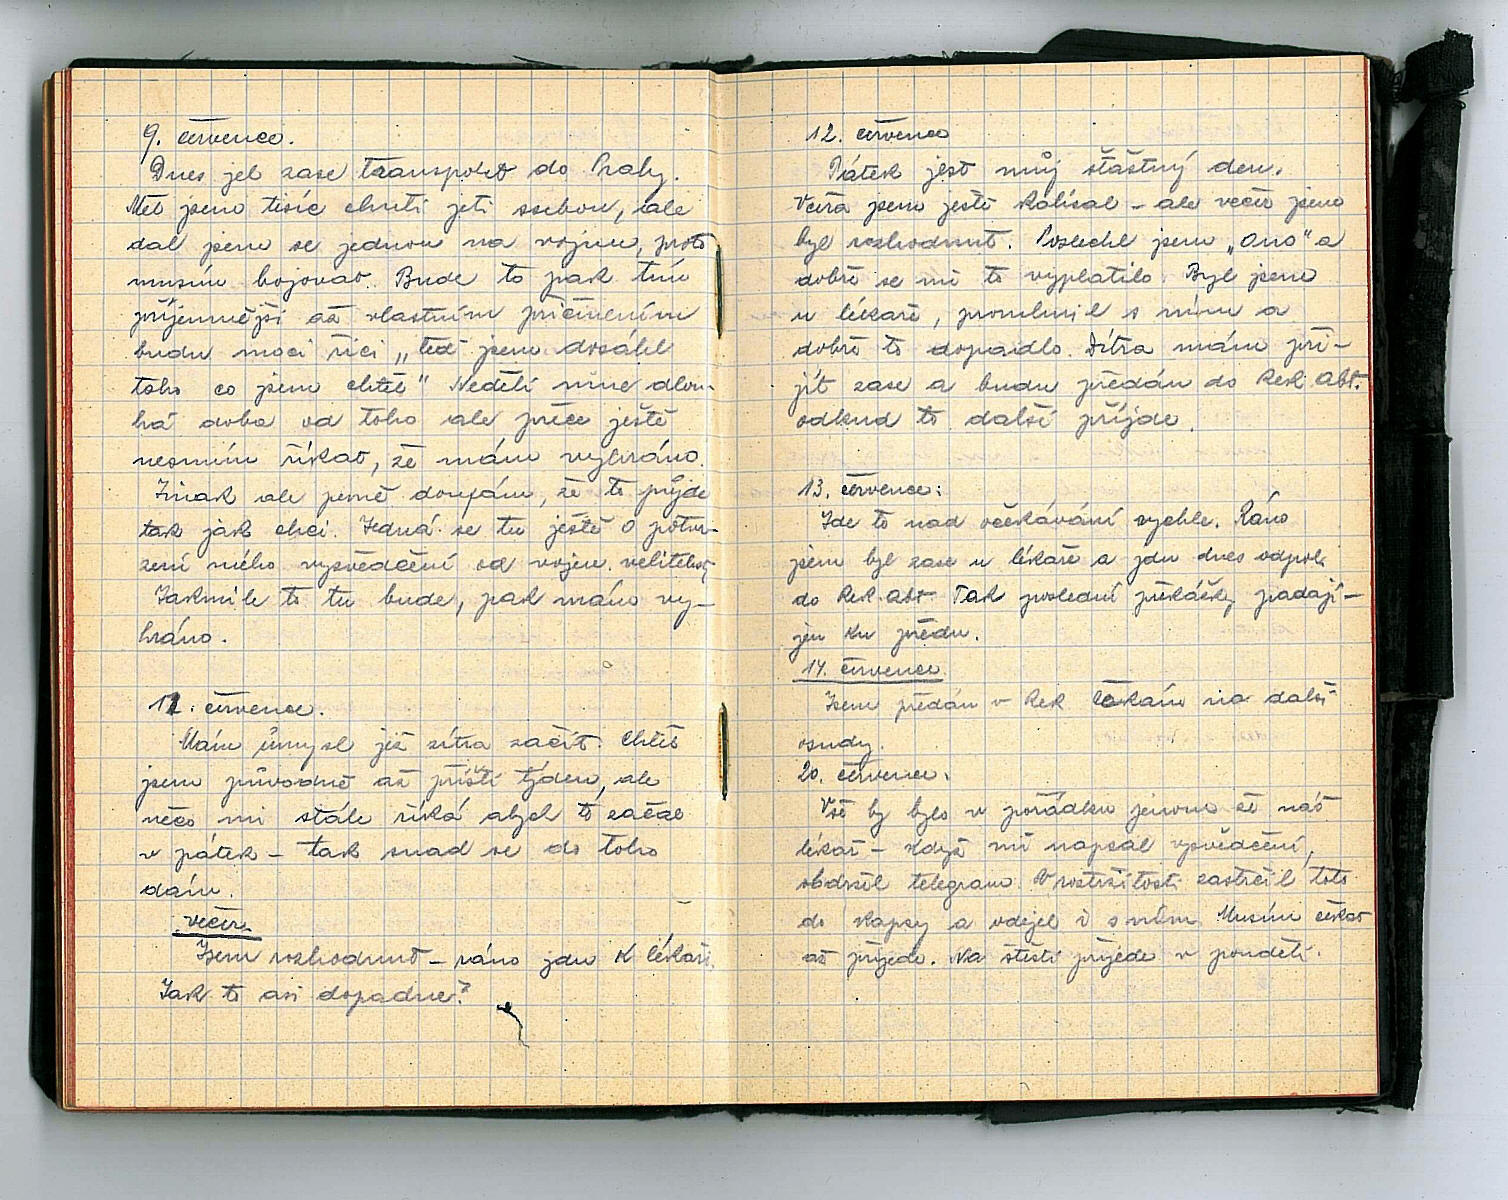 9. července.
Dnes jel zase transport do Prahy.
Měl jsem tisíc chutí jeti ssebou, ale
dal jsem se jednou na vojnu, proto
musím bojovat. Bude to pak tím
příjemnější až vlastním přičiněním
budu moci říci „teď jsem dosáhl
toho co jsem chtěl" Nedělí mne dlou-
há doba od toho ale přece ještě
nesmím říkat, že mám vyhráno.
Jinak ale pevně doufám, že to půjde
tak jak chci. Jedná se tu ještě o potvr-
zení mého vysvědčení od vojen. velitelství
Jakmile to tu bude, pak máno vy-
hráno.
11. července.
Mám úmysl již zítra začít. Chtěl
jsem původně až příští týden, ale
něco mi stále říká abych to začal
v pátek – tak snad se do toho
dám.
večer.
Jsem rozhodnut – ráno jdu k lékaři.
Jak to asi dopadne?
12. července
Pátek jest můj šťastný den.
Včera jsem ještě kolísal – ale večer jsem
byl rozhodnut. Poslechl jsem „ono" a
dobře se mi to vyplatilo. Byl jsem
u lékaře, promluvil s ním a
dobře to dopadlo. Zítra mám při-
jít zase a budu předán do Rek. Abt.
odkud to další příjde.
13. července:
Jde to nad očekávání rychle. Ráno
jsem byl zase u lékaře a jdu dnes odpol.
do Rek. Abt. Tak poslední překážky padají –
jen ku předu.
14. července
Jsem předán v Rek čekám na další
osudy.
20. července.
Vše by bylo v pořádku jenom že náš
lékař – když mi napsal vysvědčení,
obdržel telegram. V roztržitosti zastrčil toto
do kapsy a odejel i s ním. Musím čekat
až přijede. Na štěstí přijede v pondělí.